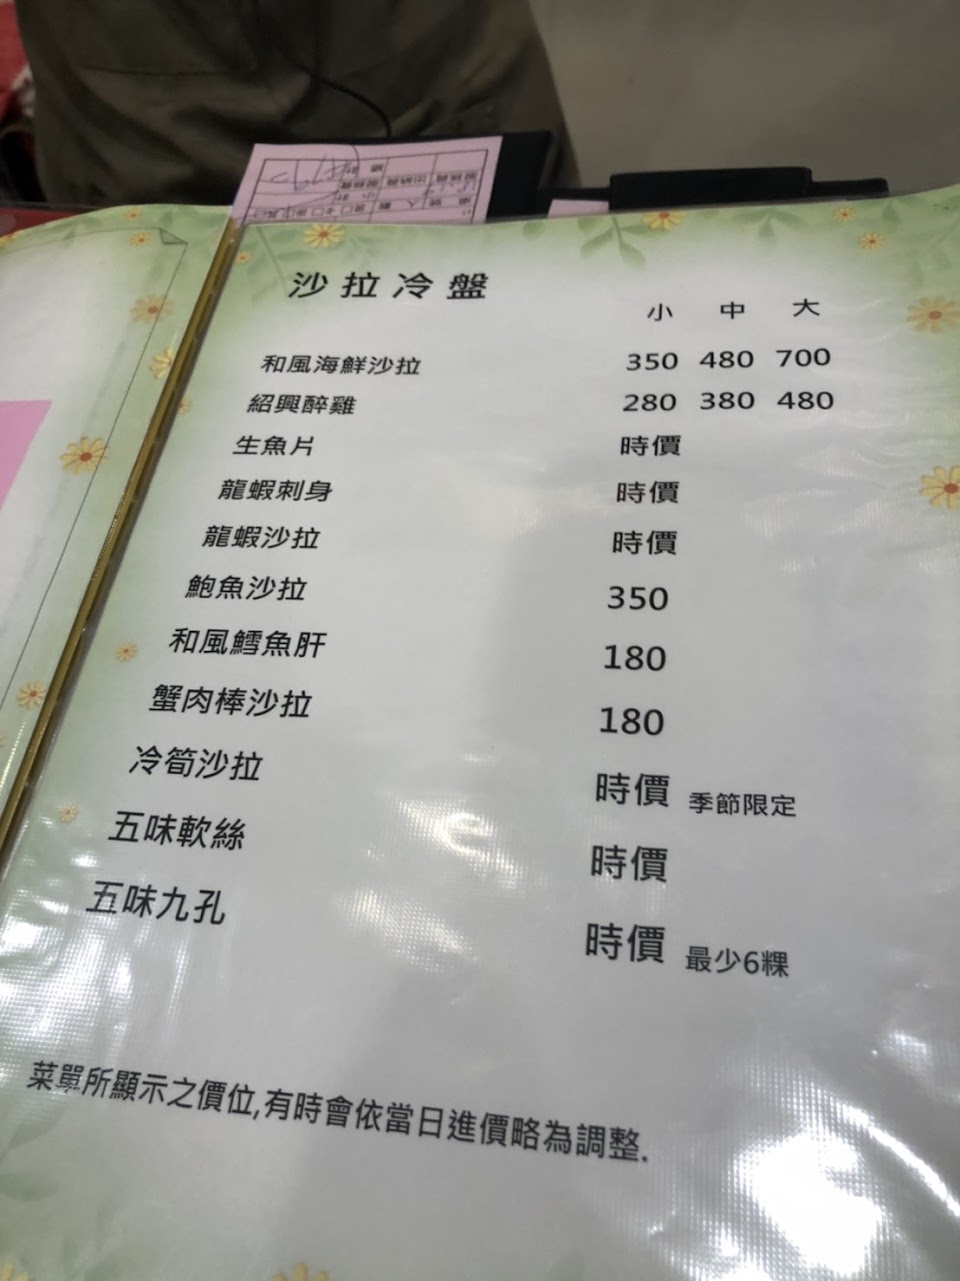 沙拉冷盤
小 中 大
和風海鮮沙拉 350 480 700
紹興醉雞 280 380 480
生魚片 時價
龍蝦刺身 時價
龍蝦沙拉 時價
鮑魚沙拉 350
和風鱈魚肝 180
蟹肉棒沙拉 180
冷筍沙拉 時價 季節限定
五味軟絲 時價
五味九孔 時價 最少6粿
菜單所顯示之價位,有時會依當日進價略為調整.